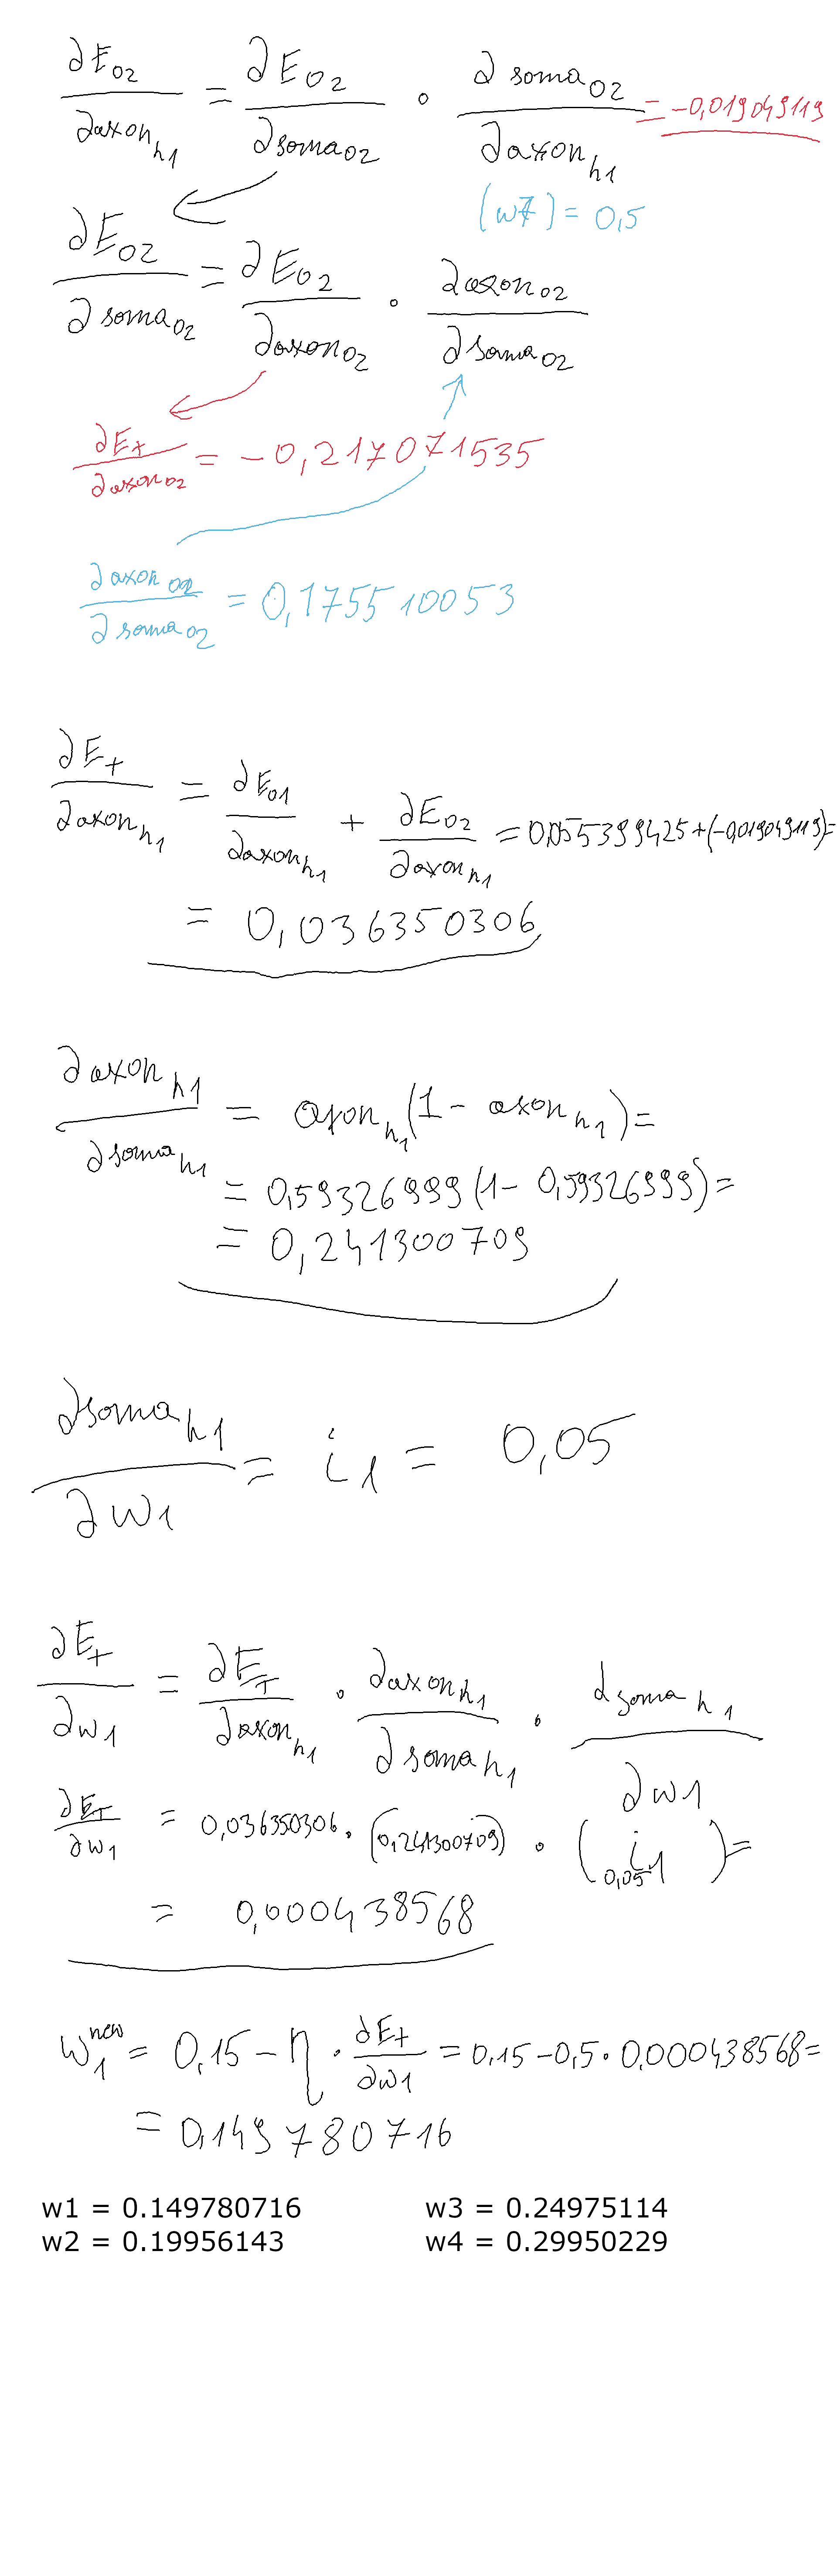 ∂E_O2 / ∂axon_h1 = ∂E_O2 / ∂soma_O2 · ∂soma_O2 / ∂axon_h1 = -0,019049119
(w7) = 0,5
∂E_O2 / ∂soma_O2 = ∂E_O2 / ∂axon_O2 · ∂axon_O2 / ∂soma_O2
∂E_t / ∂axon_O2 = -0,217071535
∂axon_O2 / ∂soma_O2 = 0,175510053
∂E_t / ∂axon_h1 = ∂E_O1 / ∂axon_h1 + ∂E_O2 / ∂axon_h1 = 0,055399425+(-0,019049119)=
= 0,036350306
∂axon_h1 / ∂soma_h1 = axon_h1(1 - axon_h1) =
= 0,59326999(1 - 0,59326999) =
= 0,241300709
∂soma_h1 / ∂w1 = i1 = 0,05
∂E_t / ∂w1 = ∂E_T / ∂axon_h1 · ∂axon_h1 / ∂soma_h1 · ∂soma_h1 / ∂w1
∂E_T / ∂w1 = 0,036350306 · (0,241300709) · (i1 0,05) =
= 0,000438568
w1^new = 0,15 - η · ∂E_t / ∂w1 = 0,15 - 0,5 · 0,000438568 =
= 0,149780716
w1 = 0.149780716 w3 = 0.24975114
w2 = 0.19956143 w4 = 0.29950229